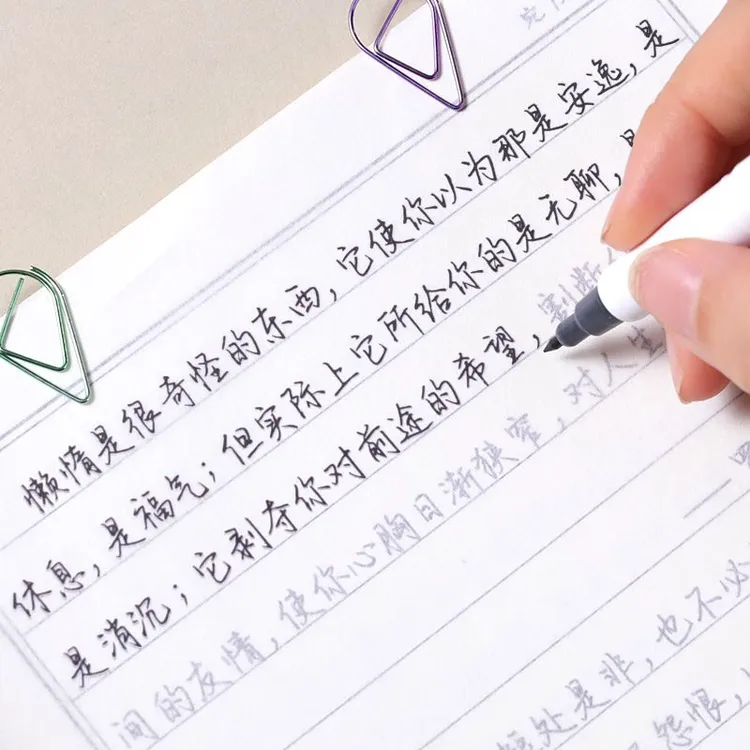 懒惰是很奇怪的东西，它使你以为那是安逸，是
休息，是福气；但实际上它所给你的是无聊，
是消沉；它剥夺你对前途的希望，割断
间的友情，使你心胸日渐狭窄，对人生
处是非，也不必
怨恨，